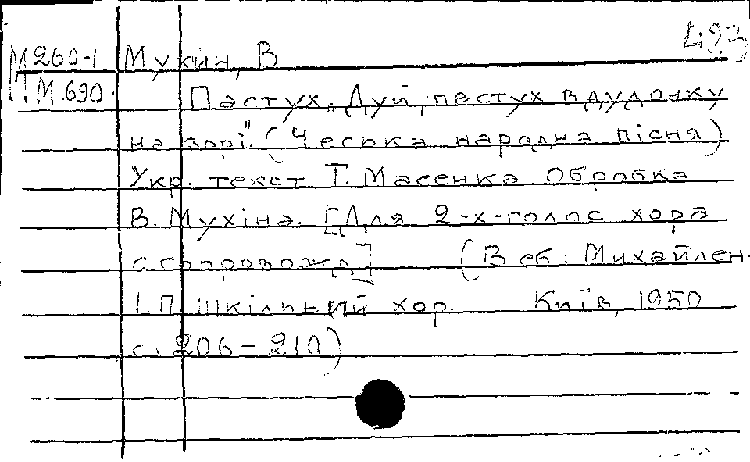 493
М 260-1 Мухін, В
М.690. Пастух. „Дуй, пастух в дудочку
на зорі." (Чеська народна пісня)
Укр. текст Т. Масенка Обробка
В. Мухіна. [Для 2-х-голос хора
с сопровожд] (В сб: Михайлен.
І.П. Шкільний хор. Київ, 1950
с. 206-210)